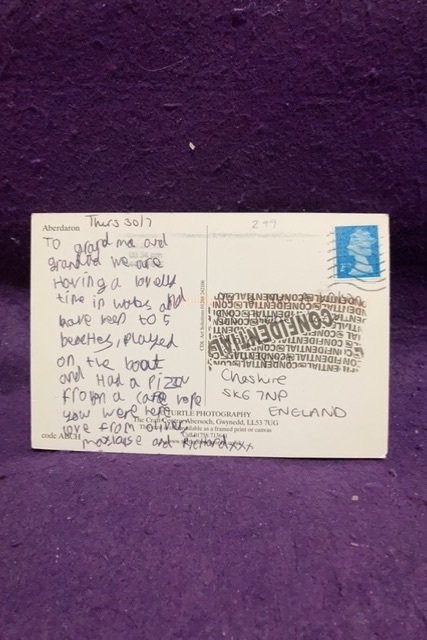 Aberdaron
Thurs 30/7
299
To grandma and
grandad we are
Having a lovely
time in wales and
have been to 5
beaches, played
on the boat
and Had a pizza
from a cafe
you were here
love from oliver
max louise and Richard xxx
code ABCH
TURTLE PHOTOGRAPHY
The Craft Centre, Abersoch, Gwynedd, LL53 7UG
as a framed print or canvas
1st
CONFIDENTIAL
Cheshire
SK6 7NP
ENGLAND